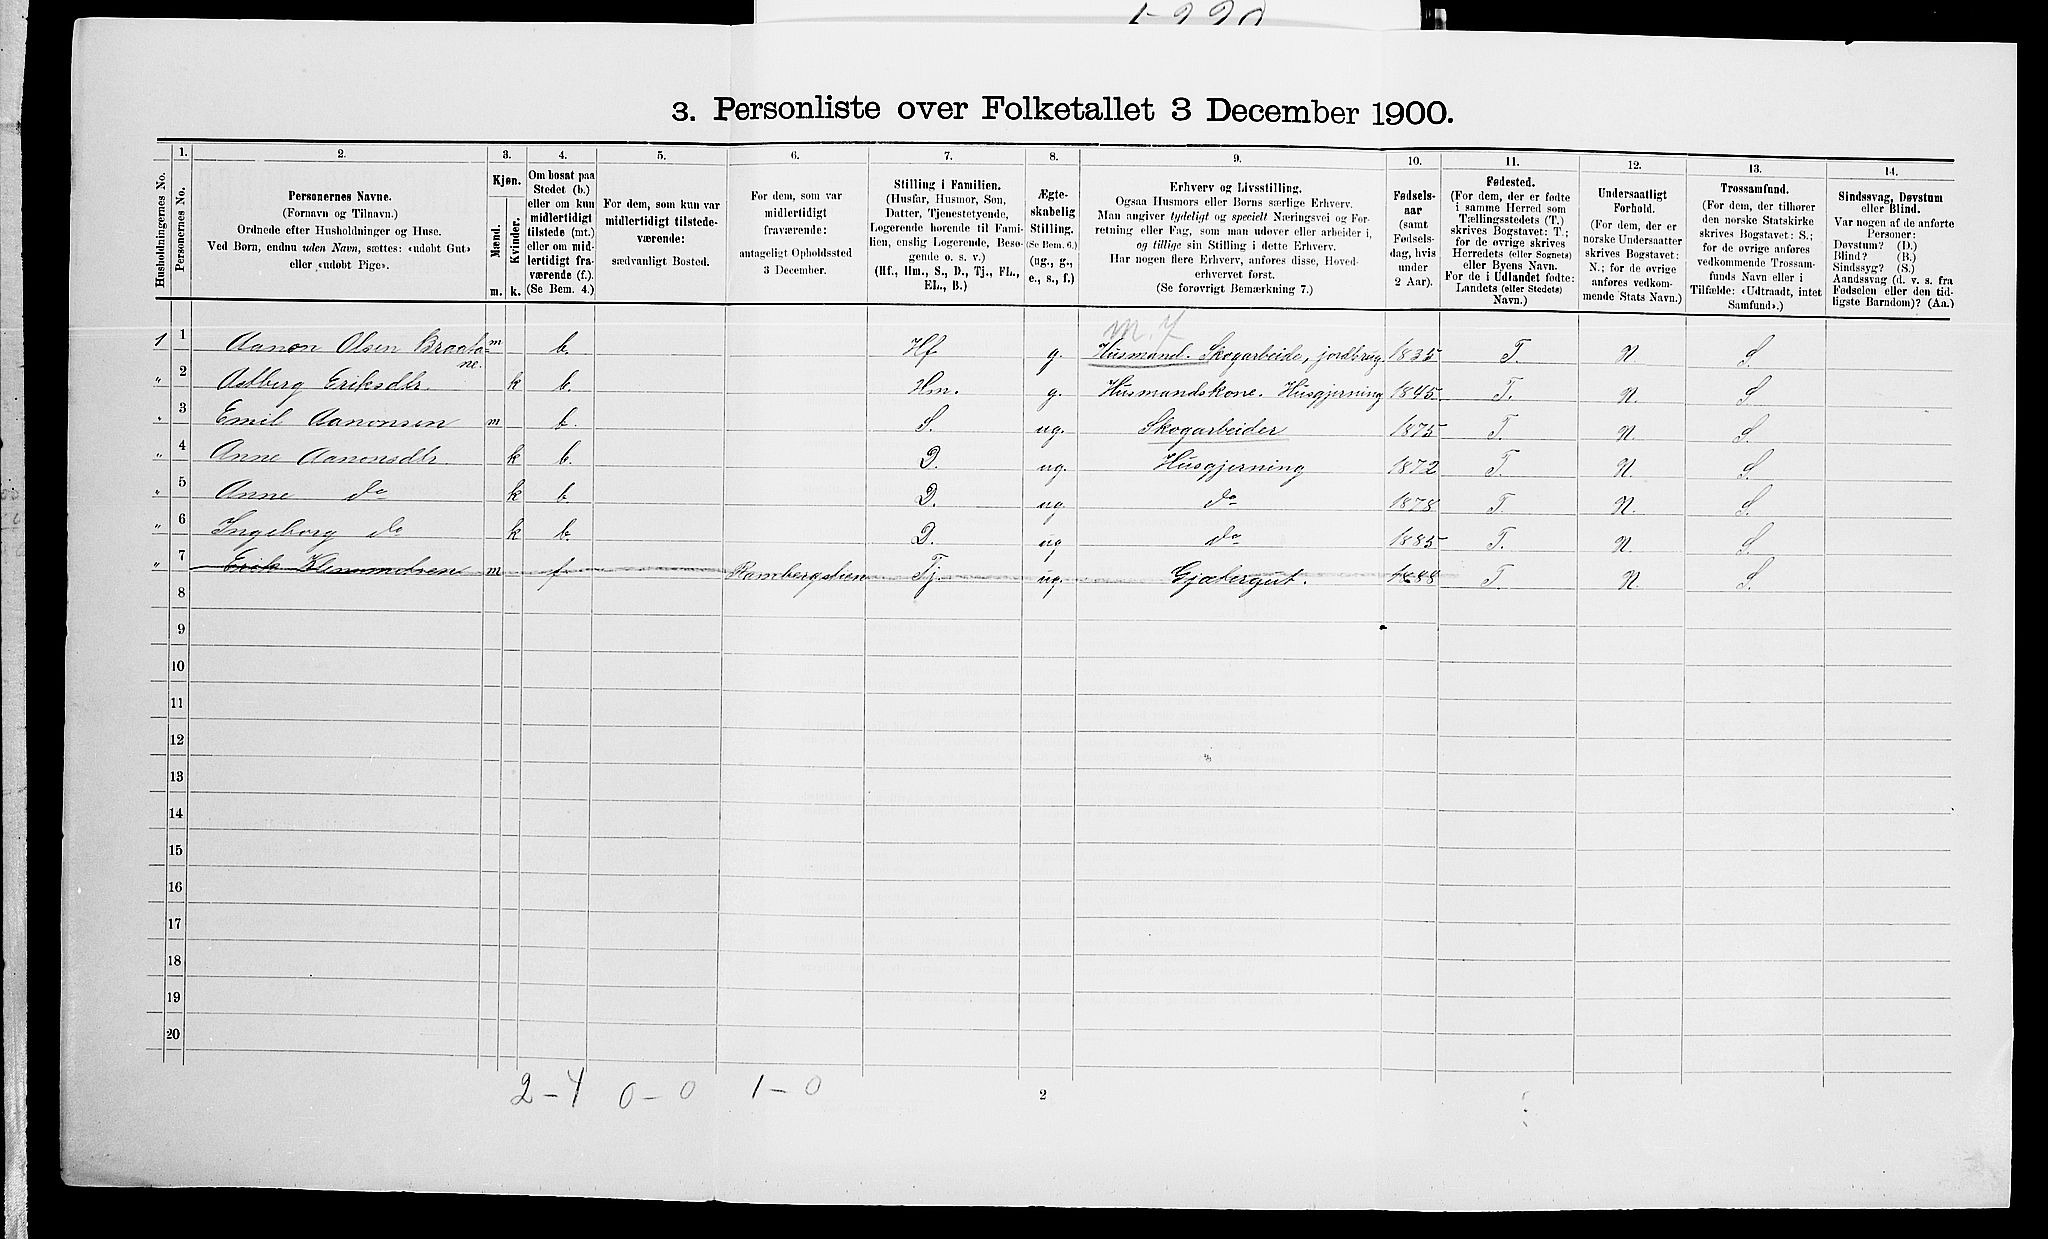 3. Personliste over Folketallet 3 December 1900.
Husholdningernes No.
1.
Personernes No.
2.
Personernes Navne.
(Fornavn og Tilnavn.)
Ordnede efter Husholdninger og Huse.
Ved Børn, endnu uden Navn, sættes: «udøbt Gut»
eller «udøbt Pige».
3.
Kjøn.
Mænd.
Kvinder.
m. k.
4.
Om bosat paa
Stedet (b.)
eller om kun
midlertidigt
tilstede (mt.)
eller om mid-
lertidigt fra-
værende (f.).
(Se Bem. 4.)
5.
For dem, som kun var
midlertidigt tilstede-
værende:
sædvanligt Bosted.
6.
For dem, som var
midlertidigt
fraværende:
antageligt Opholdssted
3 December.
7.
Stilling i Familien.
(Husfar, Husmor, Søn,
Datter, Tjenestetyende,
Logerende hørende til Fami-
lien, enslig Logerende, Besø-
gende o. s. v.)
(Hf., Hm., S., D., Tj., FL.,
EL., B.)
8.
Ægte-
skabelig
Stilling.
(Se Bem. 6.)
(ug., g.,
e., s., f.)
9.
Erhverv og Livsstilling.
Ogsaa Husmors eller Børns særlige Erhverv.
Man angiver tydeligt og specielt Næringsvei og For-
retning eller Fag, som man udøver eller arbeider i,
og tillige sin Stilling i dette Erhverv.
Har nogen flere Erhverv, anføres disse, Hoved-
erhvervet først.
(Se forøvrigt Bemærkning 7.)
10.
Fødsels-
aar
(samt
Fødsels-
dag, hvis
under
2 Aar).
11.
Fødested.
(For dem, der er fødte
i samme Herred som
Tællingsstedets (T.)
skrives Bogstavet: T.;
for de øvrige skrives
Herredets (eller Sognets)
eller Byens Navn.
For de i Udlandet fødte:
Landets (eller Stedets)
Navn.)
12.
Undersaatligt
Forhold.
(For dem, der er
norske Undersaatter
skrives Bogstavet:
N.; for de øvrige
anføres vedkom-
mende Stats Navn.)
13.
Trossamfund.
(For dem, der tilhører
den norske Statskirke
skrives Bogstavet: S.;
for de øvrige anføres
vedkommende Trossam-
funds Navn eller i
Tilfælde: «Udtraadt, intet
Samfund».)
14.
Sindssvag, Døvstum
eller Blind.
Var nogen af de anførte
Personer:
Døvstum? (D.)
Blind? (B.)
Sindssyg? (S.)
Aandssvag (d. v. s. fra
Fødselen eller den tid-
ligste Barndom)? (Aa.)
1 1 Aanon Olsen Braata- m b. Hf g. Husmand. Skogarbeide, jordbrug 1835 T. N S.
ne.
" 2 Astberg Eriksdtr k b. Hm. g. Husmandskone. Husgjerning 1845 T. N. S
" 3 Emil Aanonsen m b. S. ug. Skogarbeider 1875 T. N. S.
" 4 Anne Aanonsdtr. k b. D. ug. Husgjerning 1872 T. N. S.
" 5 Anne do k b. D. ug. do 1878 T. N. S.
" 6 Ingeborg do k b. D. ug do 1885 T. N. S.
" 7 Erik m f Tj ug. Gjætergut. 1888 T. N. S.
8
9
10
11
12
13
14
15
16
17
18
19
20
2-4 0-0 1-0
2